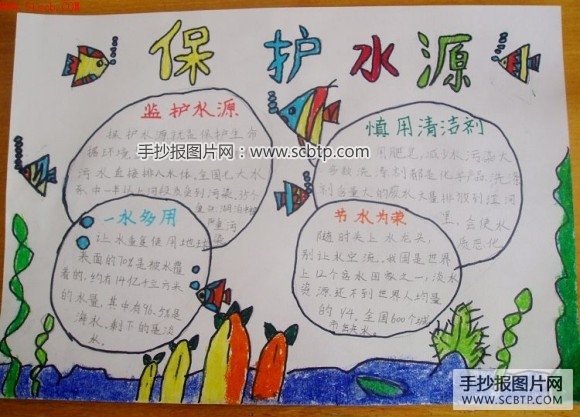 保护水源
监护水源
保护水源就是保护生命
据环境
手抄报图片网:www.scbtp.com
污水直接排入水体,全国七大水
系中一半以上河段
受到污染,35个
严重污
慎用清洁剂
用肥皂,减少水污染大
多数洗
剂都是化学产品,洗涤
剂含量大的废水大量排放到江河
里,会使水
质恶化
一水多用
让水重复使用地球
表面的70%是被水覆
盖的,约有14亿千立方米
的水量,其中有96.5%是
海水,剩下的是淡
水。
节水为荣
随时关上水龙头,
别让水空流,我国是世界
上12个贫水国家之一,淡水
资源还不到世界人均量
的1/4,全国600个城
市
缺水。
手抄报图片网
WWW.SCBTP.COM